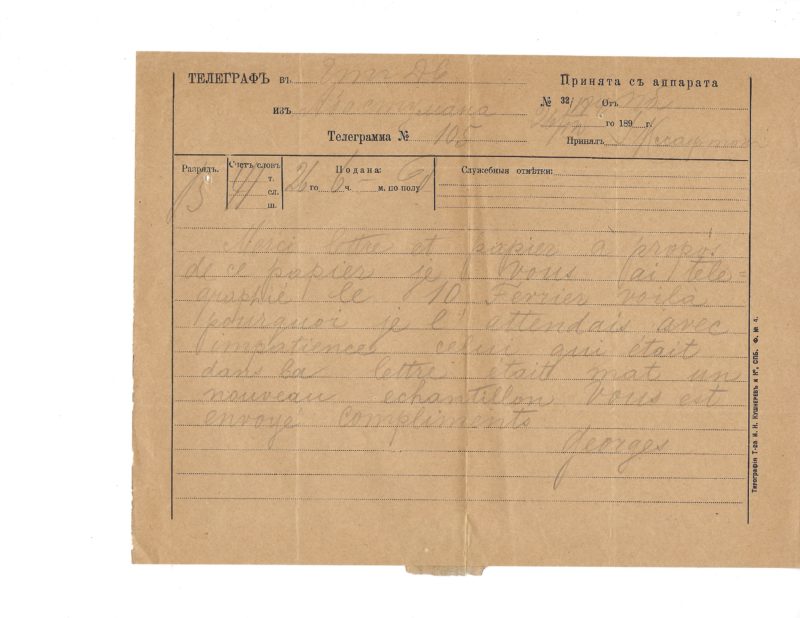 ТЕЛЕГРАФЪ въ
Принята съ аппарата
изъ
№ 32 Отъ
го 189 г.
Телеграмма № 105
Принялъ
Разрядъ.
Счетъ словъ
т.
сл.
ш.
Подана:
26 го 6 ч. м. по полу
Служебныя отмѣтки:
Merci lettre et papier à propos
de ce papier je vous ai télé=
graphié le 10 Février voilà
pourquoi je l'attendais avec
impatience celui qui était
dans la lettre était mat un
nouveau échantillon vous est
envoyé compliments
Georges
Типографія Т-ва И. Н. Кушнеревъ и Ко, СПБ. Ф. № 4.